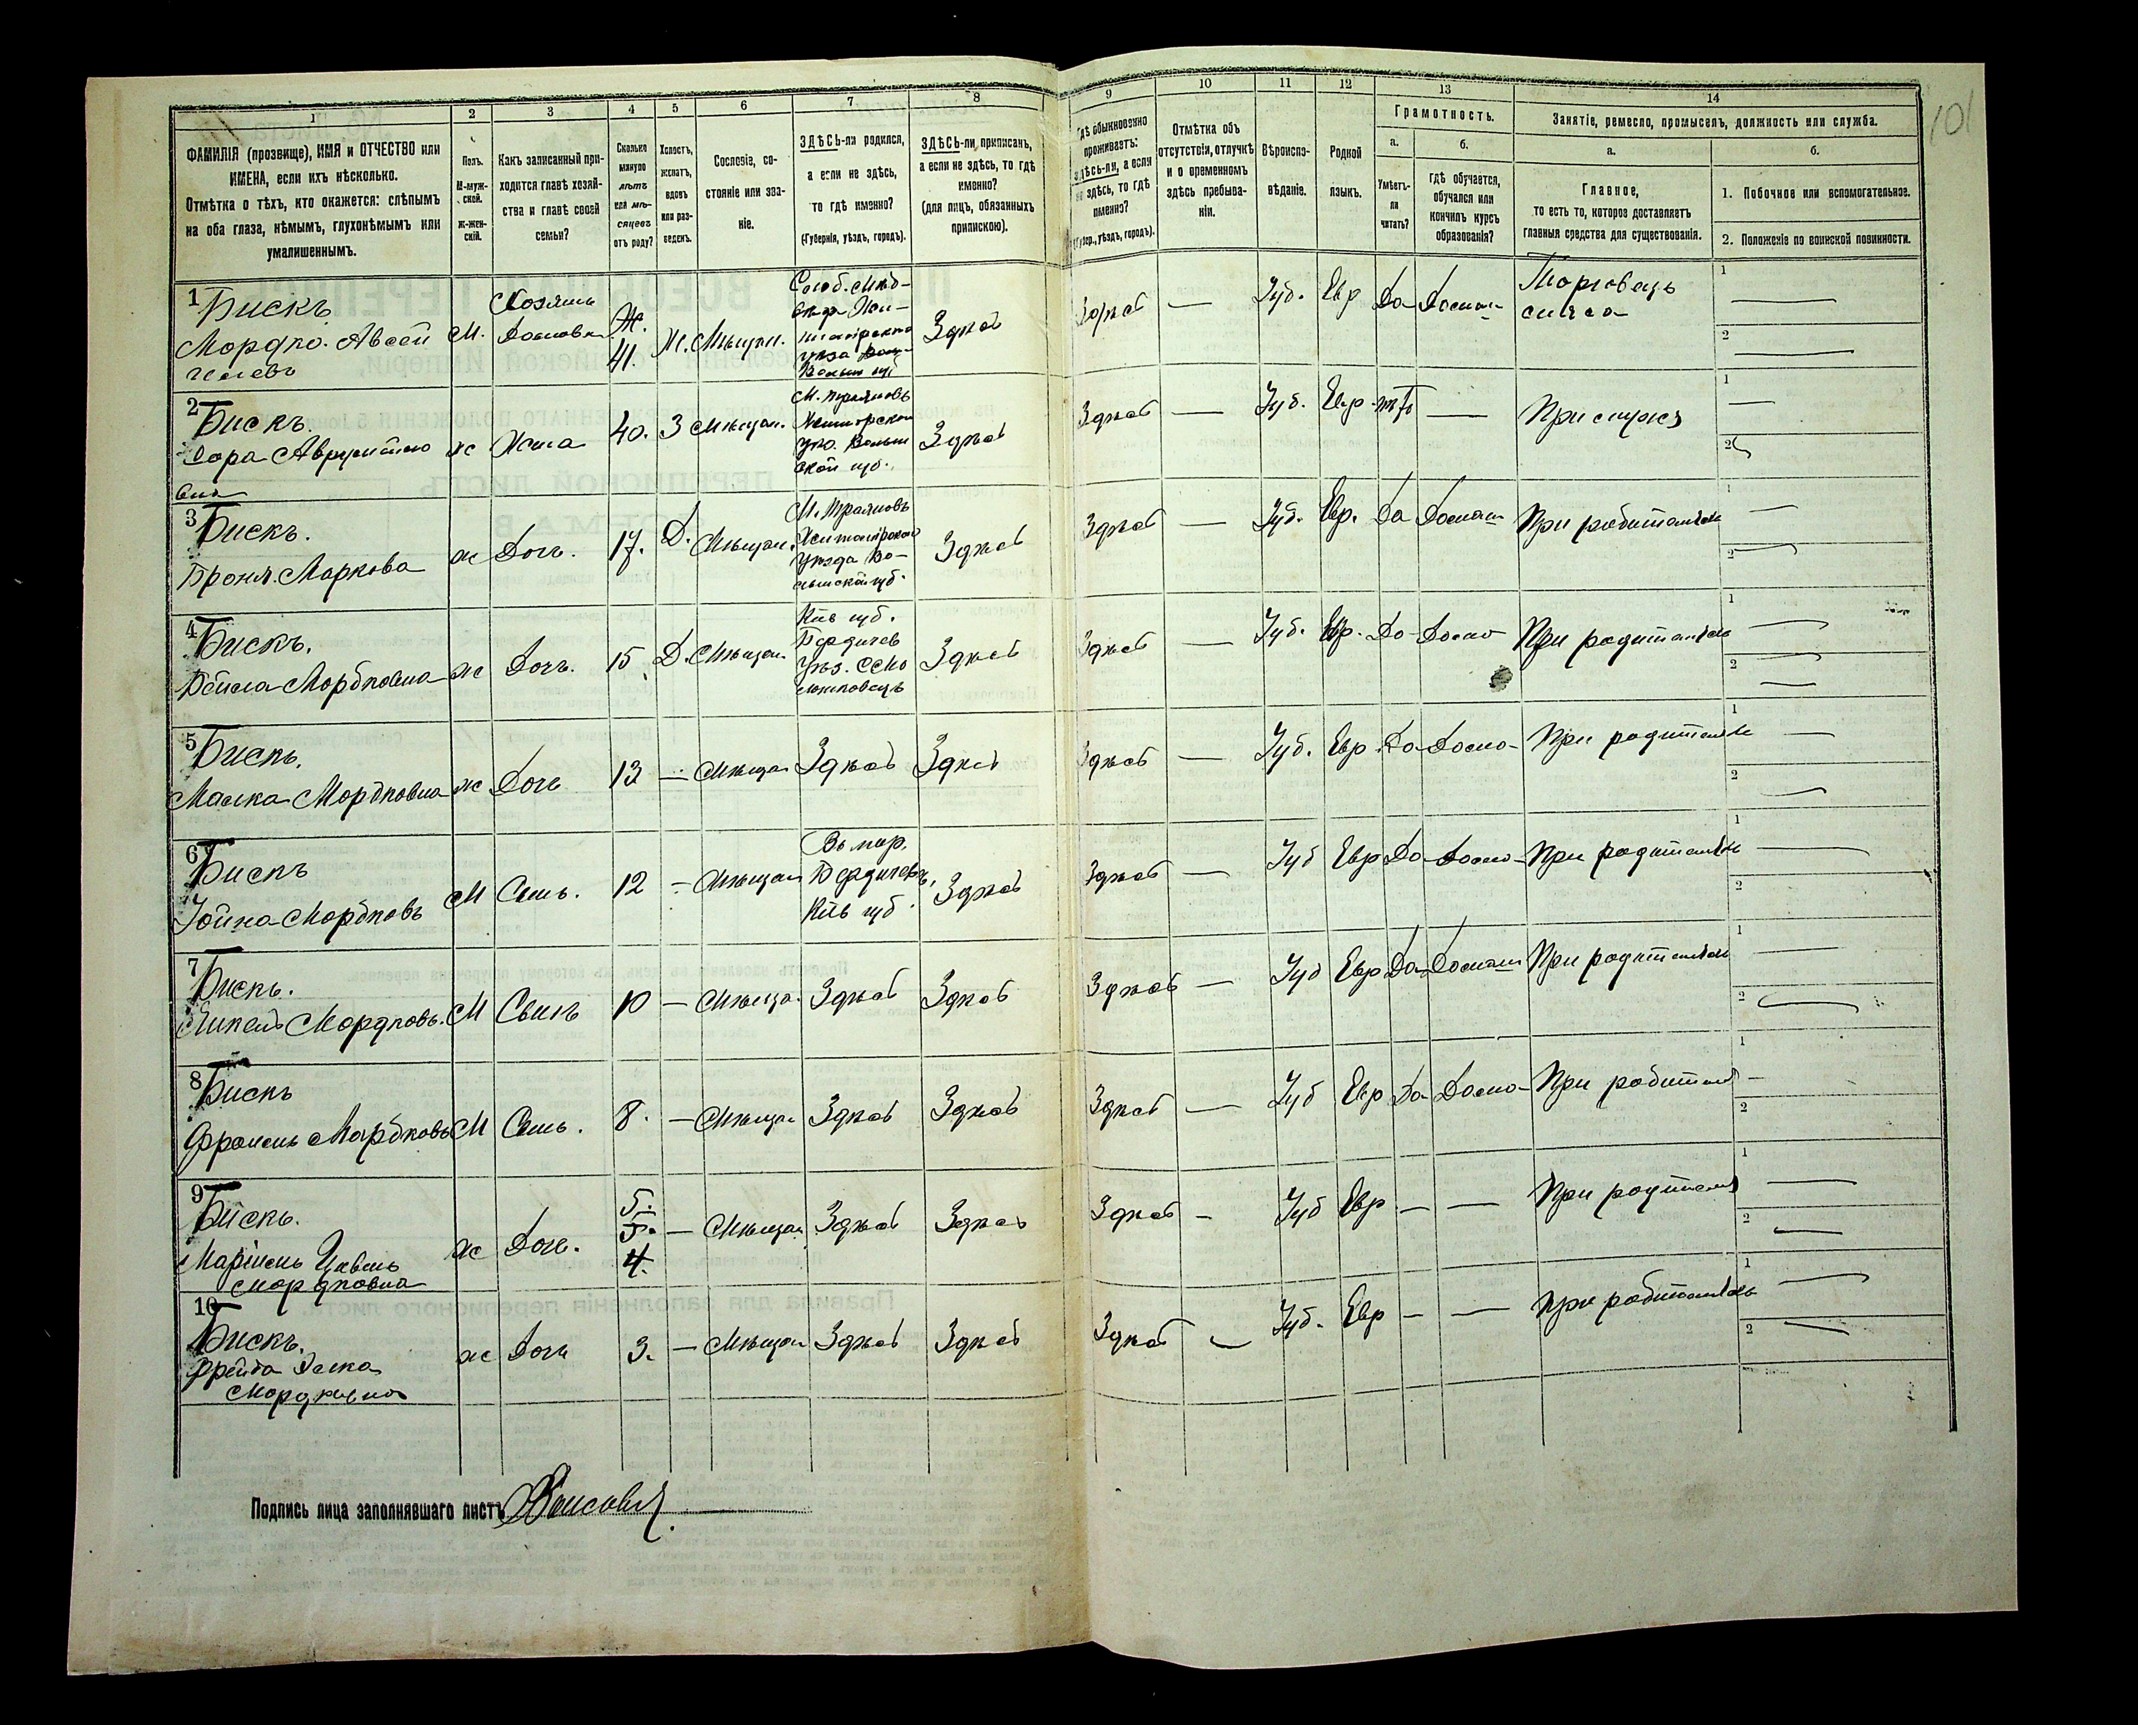 101
1
2
3
4
5
6
7
8
9
10
11
12
13
14
ФАМИЛІЯ (прозвище), ИМЯ и ОТЧЕСТВО или
ИМЕНА, если ихъ нѣсколько.
Отмѣтка о тѣхъ, кто окажется: слѣпымъ
на оба глаза, нѣмымъ, глухонѣмымъ или
умалишеннымъ.
Полъ.
М-муж-
ской.
Ж-жен-
скій.
Какъ записанный при-
ходится главѣ хозяй-
ства и главѣ своей
семьи?
Сколько
минуло
лѣтъ
или мѣ-
сяцевъ
отъ роду?
Холостъ,
женатъ,
вдовъ
или раз-
веденъ.
Сословіе, со-
стояніе или зва-
ніе.
ЗДѢСЬ-ли родился,
а если не здѣсь,
то гдѣ именно?
(Губернія, уѣздъ, городъ).
ЗДѢСЬ-ли приписанъ,
а если не здѣсь, то гдѣ
именно?
(для лицъ, обязанныхъ
припискою).
Гдѣ обыкновенно
проживаетъ:
здѣсь-ли, а если
не здѣсь, то гдѣ
именно?
(Губер., уѣздъ, городъ).
Отмѣтка объ
отсутствіи, отлучкѣ
и о временномъ
здѣсь пребыва-
ніи.
Вѣроиспо-
вѣданіе.
Родной
языкъ.
Грамотность.
а.
Умѣетъ-
ли
читать?
б.
гдѣ обучается,
обучался или
кончилъ курсъ
образованія?
Занятіе, ремесло, промыселъ, должность или служба.
а.
Главное,
то есть то, которое доставляетъ
главныя средства для существованія.
б.
1. Побочное или вспомогательное.
2. Положеніе по воинской повинности.
1 Бискъ
Мордко Авсей
М. Хозяинъ
41. Ж. Мѣщан.
Здѣсь
Здѣсь — Іуд. Евр Да
Торговецъ
1
2
2 Бискъ.
ж Жена 40. З Мѣщан.
Здѣсь
Здѣсь — Іуд. Евр. — При мужѣ
1
2
3 Бискъ.
Броня Маркова
ж Дочь. 17. Д. Мѣщан.
Уѣзда Во-
лынской губ.
Здѣсь
Здѣсь — Іуд. Евр. Да При родителяхъ
1
2
4 Бискъ.
Бейла Мордковна
ж Дочь. 15 Д. Мѣщан.
Кіев губ.
Бердичев
Уѣз.
Здѣсь
Здѣсь — Іуд. Евр. Да Дома При родителяхъ
1
2
5 Бискъ.
Малка Мордковна
ж Дочь 13 — Мѣщан Здѣсь Здѣсь
Здѣсь — Іуд. Евр. Да Дома При родителяхъ
1
2
6 Бискъ
Іойна Мордковъ
М Сынъ. 12 — Мѣщан
Бердичевъ,
Кіев губ.
Здѣсь
Здѣсь — Іуд Евр Да Дома При родителяхъ
1
2
7 Бискъ.
Мордковъ.
М Сынъ 10 — Мѣща. Здѣсь Здѣсь
Здѣсь — Іуд Евр Да При родителяхъ
1
2
8 Бискъ
Фроимъ Мордковъ
М Сынъ. 8. — Мѣщан Здѣсь Здѣсь
Здѣсь — Іуд Евр Да Дома При родител
1
2
9 Бискъ.
Мордковна
ж Дочь. 5. 4. — Мѣщан Здѣсь Здѣсь
Здѣсь — Іуд Евр — — При родител
1
2
10 Бискъ.
Фрейда
Мордковна
ж Дочь 3. — Мѣщан Здѣсь Здѣсь
Здѣсь — Іуд. Евр — — При родителяхъ
1
2
Подпись лица заполнявшаго листъ